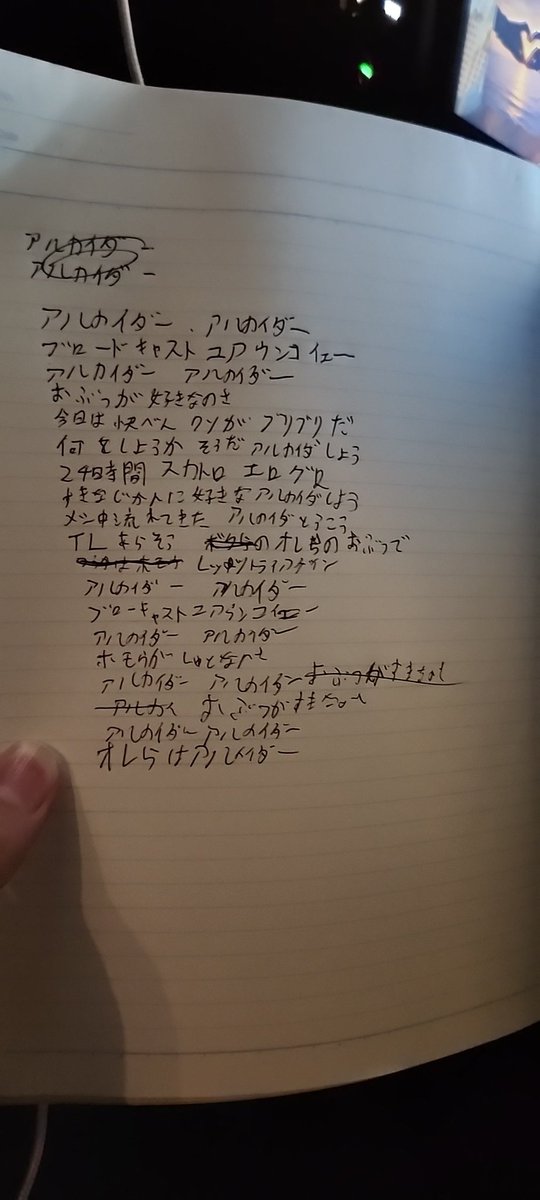 アルカイダー
アルカイダー
アルカイダー、アルカイダー
ブロードキャスト ユア ウンコ イェー
アルカイダー アルカイダー
おぶつが好きなのさ
今日は快べん クソが ブリブリだ
何をしようか そうだ アルカイダしよう
24時間 スカトロ エログロ
すきなじかんに好きなアルカイダしよう
メシ中流れてきた アルカイダ
TLよらそう の オレらの おぶつで
レッツトライアゲイン
アルカイダー アルカイダー
ブローキャストユアウンコイェー
アルカイダー アルカイダー
アルカイダー アルカイダー おぶつがすきなの
アルカイ おぶつがすきなの
アルカイダー アルカイダー
オレらはアルカイダー